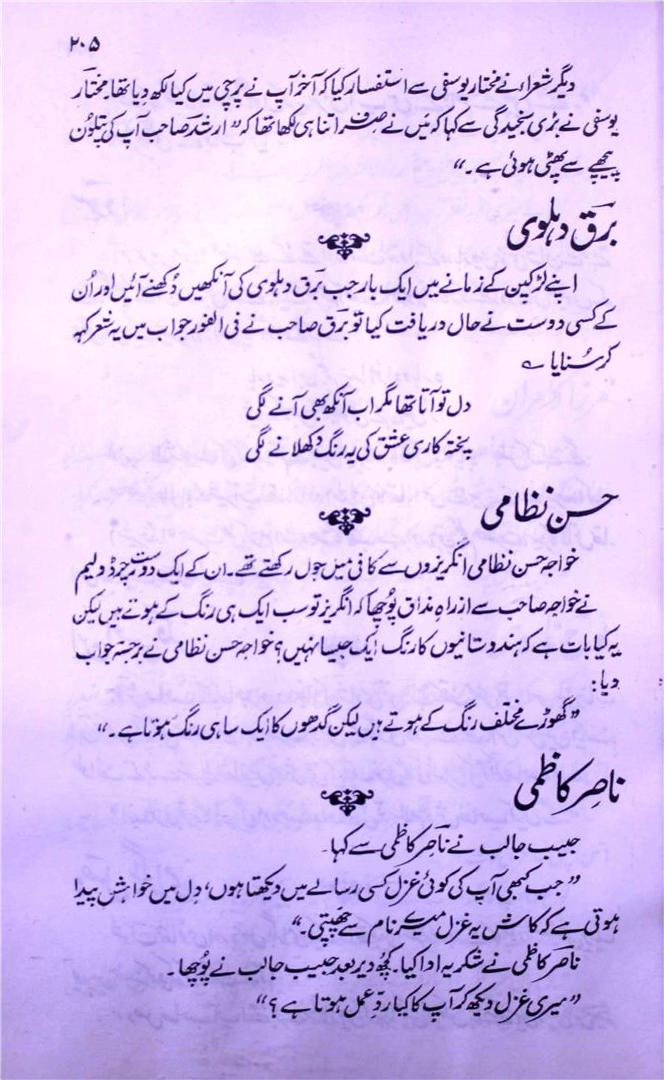 ۲۰۵
دیگر شعراء نے مختار یوسفی سے استفسار کیا کہ آخر آپ نے پرچی میں کیا لکھ دیا تھا مختار
یوسفی نے بڑی سنجیدگی سے کہا کہ میں نے صرف اتنا ہی لکھا تھا کہ "ارشد صاحب آپ کی پتلون
پیچھے سے پھٹی ہوئی ہے۔"
برق دہلوی
اپنے لڑکپن کے زمانے میں ایک بار جب برق دہلوی کی آنکھیں دُکھنے آئیں اور اُن
کے کسی دوست نے حال دریافت کیا تو برق صاحب نے فی الفور جواب میں یہ شعر کہہ
کر سُنایا ؎
دل تو آتا تھا مگر اب آنکھ بھی آنے لگی
پختہ کاری عشق کی یہ رنگ دکھلانے لگی
حسن نظامی
خواجہ حسن نظامی انگریزوں سے کافی میل جول رکھتے تھے۔ ان کے ایک دوست رچرڈ ولیم
نے خواجہ صاحب سے از راہِ مذاق پُوچھا کہ انگریز تو سب ایک ہی رنگ کے ہوتے ہیں لیکن
یہ کیا بات ہے کہ ہندوستانیوں کا رنگ ایک جیسا نہیں؟ خواجہ حسن نظامی نے برجستہ جواب
دیا:
"گھوڑے مختلف رنگ کے ہوتے ہیں لیکن گدھوں کا ایک سا ہی رنگ ہوتا ہے۔"
ناصر کاظمی
حبیب جالب نے ناصر کاظمی سے کہا۔
"جب کبھی آپ کی کوئی غزل کسی رسالے میں دیکھتا ہوں، دل میں خواہش پیدا
ہوتی ہے کہ کاش یہ غزل میرے نام سے چھپتی۔"
ناصر کاظمی نے شکریہ ادا کیا۔ کچھ دیر بعد حبیب جالب نے پُوچھا۔
"میری غزل دیکھ کر آپ کا کیا ردِّ عمل ہوتا ہے؟"